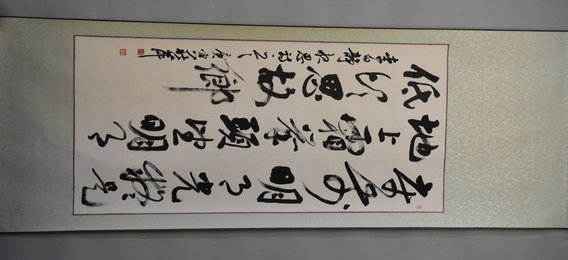 床前明月光疑是
地上霜举頭望明月
低头思故鄉
李白静夜思